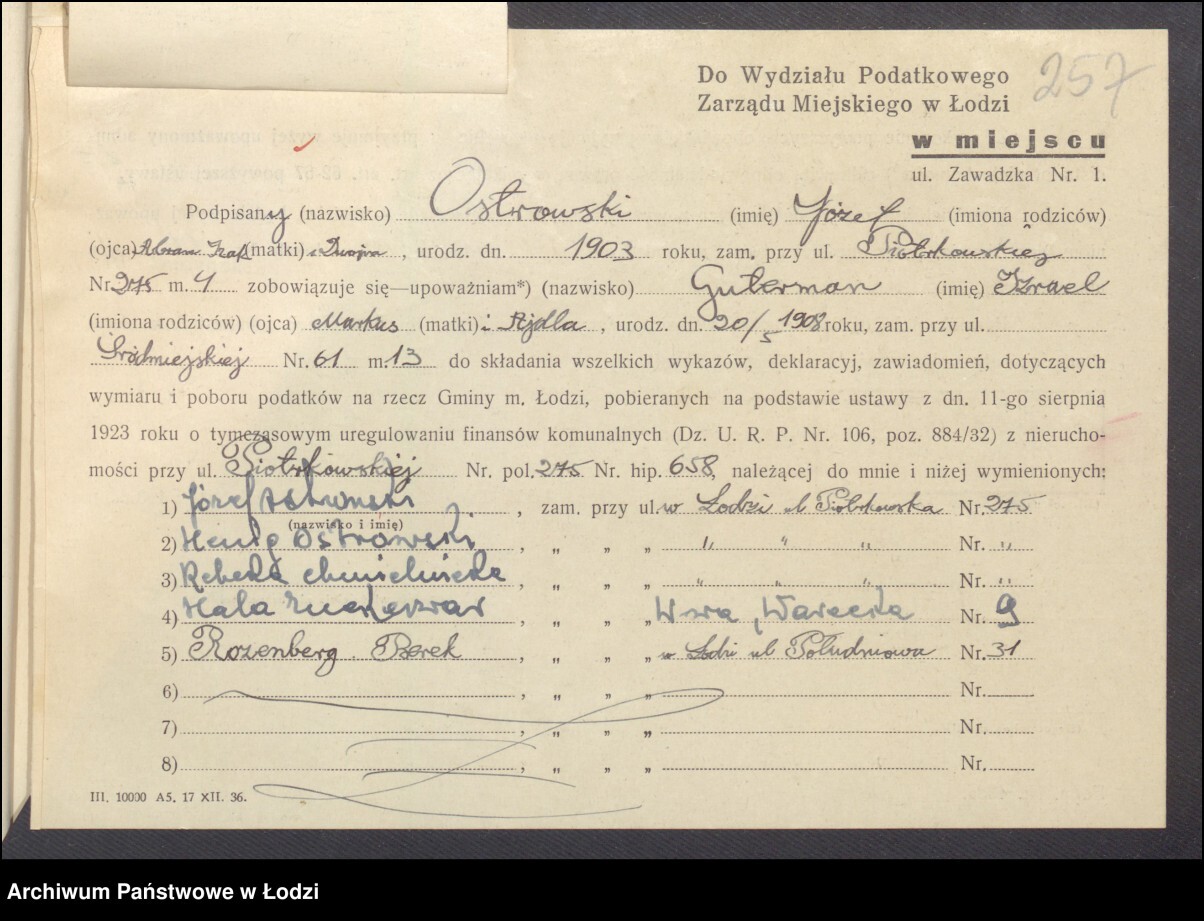 Do Wydziału Podatkowego
Zarządu Miejskiego w Łodzi
257
w miejscu
ul. Zawadzka Nr. 1.
Podpisany (nazwisko) Ostrowski (imię) Józef (imiona rodziców)
(ojca) Abram Izak (matki) i Dwojra, urodz. dn. 1903 roku, zam. przy ul. Piotrkowskiej
Nr. 275 m. 4 zobowiązuje się—upoważniam*) (nazwisko) Guterman (imię) Izrael
(imiona rodziców) (ojca) Markus (matki) i Ajdla, urodz. dn. 20/5 1908 roku, zam. przy ul.
Śródmiejskiej Nr. 61 m. 13 do składania wszelkich wykazów, deklaracyj, zawiadomień, dotyczących
wymiaru i poboru podatków na rzecz Gminy m. Łodzi, pobieranych na podstawie ustawy z dn. 11-go sierpnia
1923 roku o tymczasowym uregulowaniu finansów komunalnych (Dz. U. R. P. Nr. 106, poz. 884/32) z nierucho-
mości przy ul. Piotrkowskiej Nr. pol. 275 Nr. hip. 658, należącej do mnie i niżej wymienionych:
1) Józef Ostrowski, zam. przy ul. w Łodzi ul. Piotrkowska Nr. 275
(nazwisko i imię)
2) Henig Ostrowski, „ „ „ " " " Nr. "
3) Rebeka Chmielnicka, „ „ „ " " " Nr. "
4) Hala, „ „ „ Wwa, Warecka Nr. 9
5) Rozenberg Berek, „ „ „ w Łodzi ul. Południowa Nr. 31
6) , „ „ „ Nr.
7) , „ „ „ Nr.
8) , „ „ „ Nr.
III. 10000 A5. 17 XII. 36.
Archiwum Państwowe w Łodzi